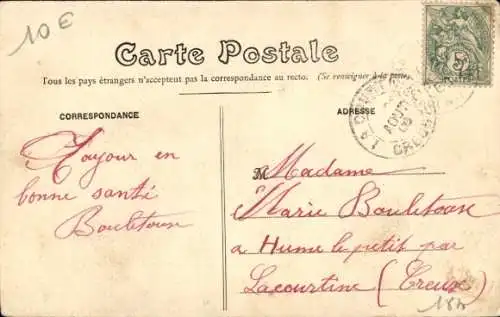 10€
Carte Postale
Tous les pays étrangers n'acceptent pas la correspondance au recto. (Se renseigner à la poste)
CORRESPONDANCE
ADRESSE
LA COURTINE
AOUT
CREUSE
5
Toujour en
bonne santé
Bouletoux
M
Madame
Marie Bouletoux
a Hume le petit par
Lacourtine (Creuse)